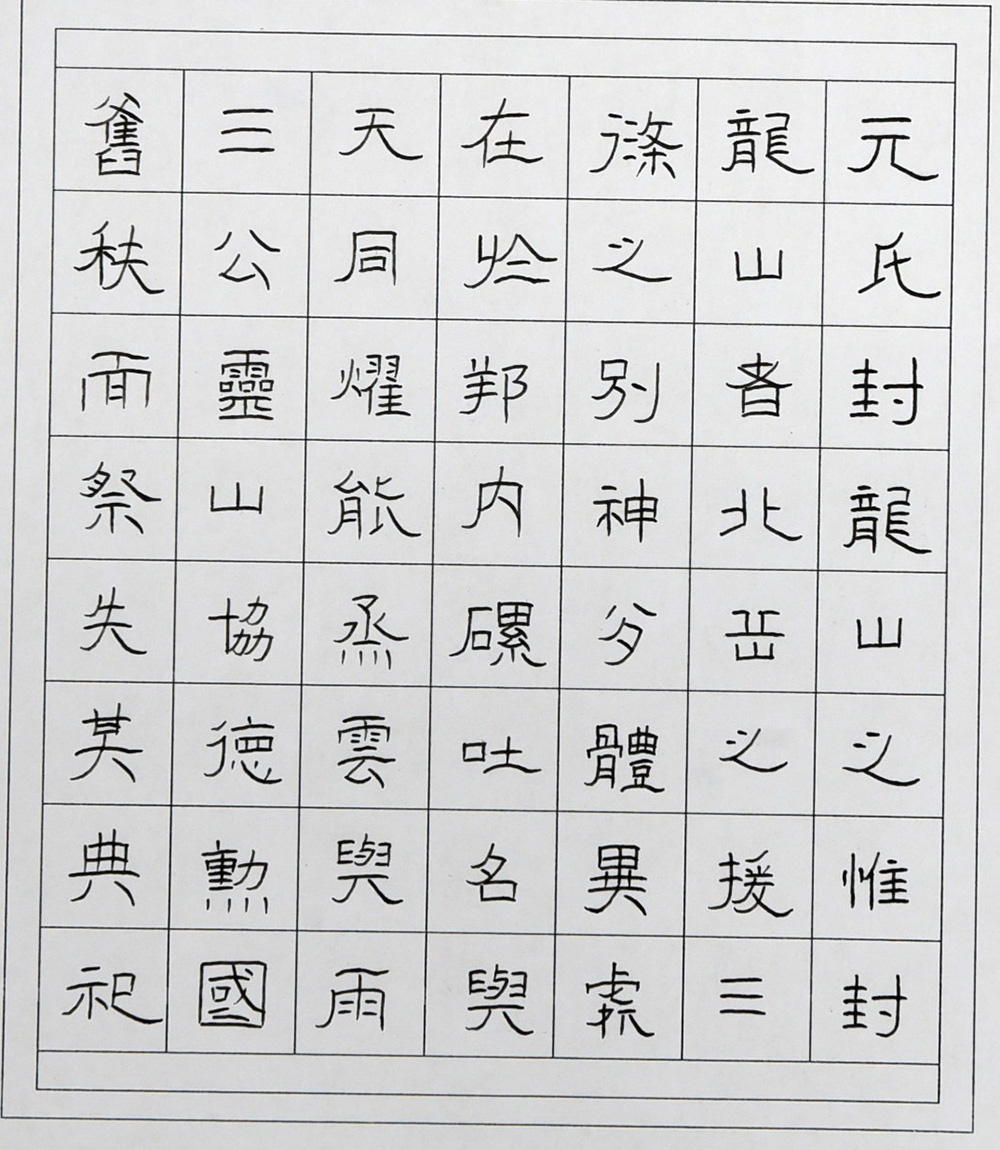 元氏封龍山之惟封
龍山者北岳之援三
條之別神分體異處
在於邦内磥吐名與
天同耀能烝雲與雨
三公靈山協徳勲國
舊秩而祭失其典祀